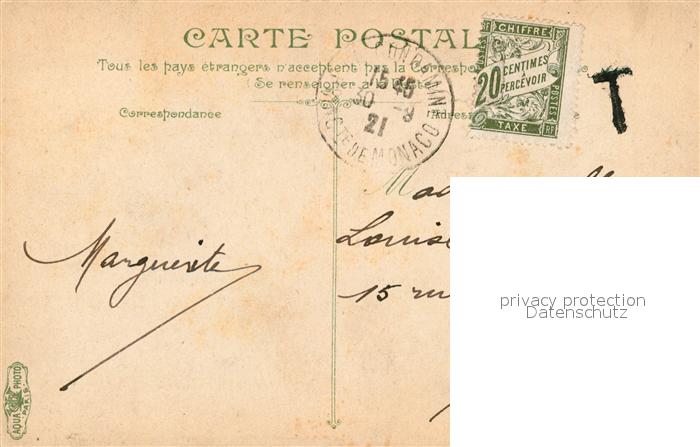 CARTE POSTALE
Tous les pays étrangers n'acceptent pas la Corresp
(Se renseigner à la
Correspondance
Adres
15 45
30 -9
21
PTE DE MONACO
CHIFFRE
POSTES
20 CENTIMES
À PERCEVOIR
POSTES
TAXE
RF
T
Louise
15 rue
Marguerite
privacy protection
Datenschutz
AQUA PHOTO
PARIS